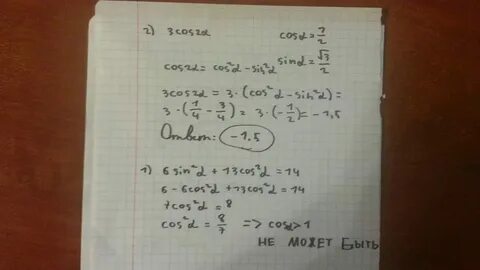 2) 3cos2α cosα = 1/2
cos2α = cos²α - sin²α sinα = √3/2
3cos2α = 3·(cos²α - sin²α) =
3·(1/4 - 3/4) = 3·(-1/2) = -1,5
Ответ: -1,5
1) 6sin²α + 13cos²α = 14
6 - 6cos²α + 13cos²α = 14
7cos²α = 8
cos²α = 8/7 => cosα > 1
НЕ МОЖЕТ БЫТЬ